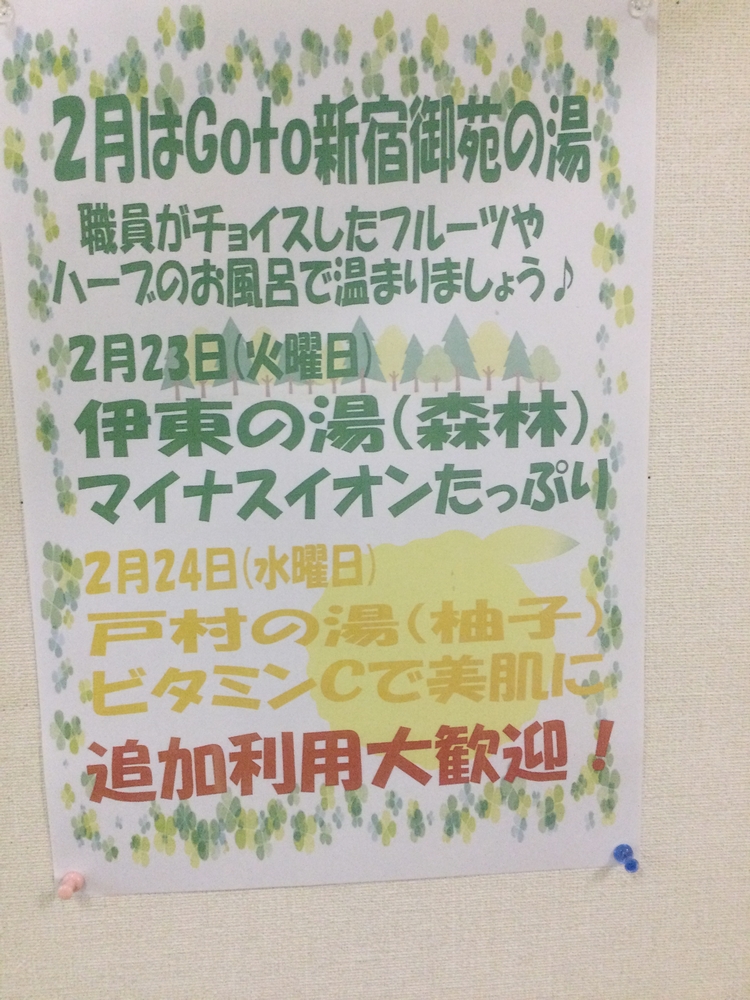 2月はGoto新宿御苑の湯
職員がチョイスしたフルーツや
ハーブのお風呂で温まりましょう♪
2月23日(火曜日)
伊東の湯(森林)
マイナスイオンたっぷり
2月24日(水曜日)
戸村の湯(柚子)
ビタミンCで美肌に
追加利用大歓迎!